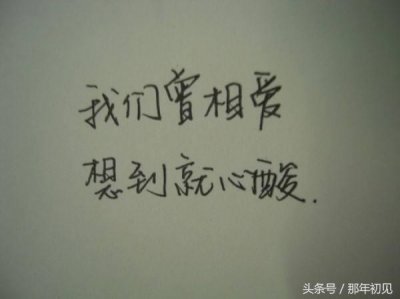 我们曾相爱
想到就心酸.
头条号 / 那年初见